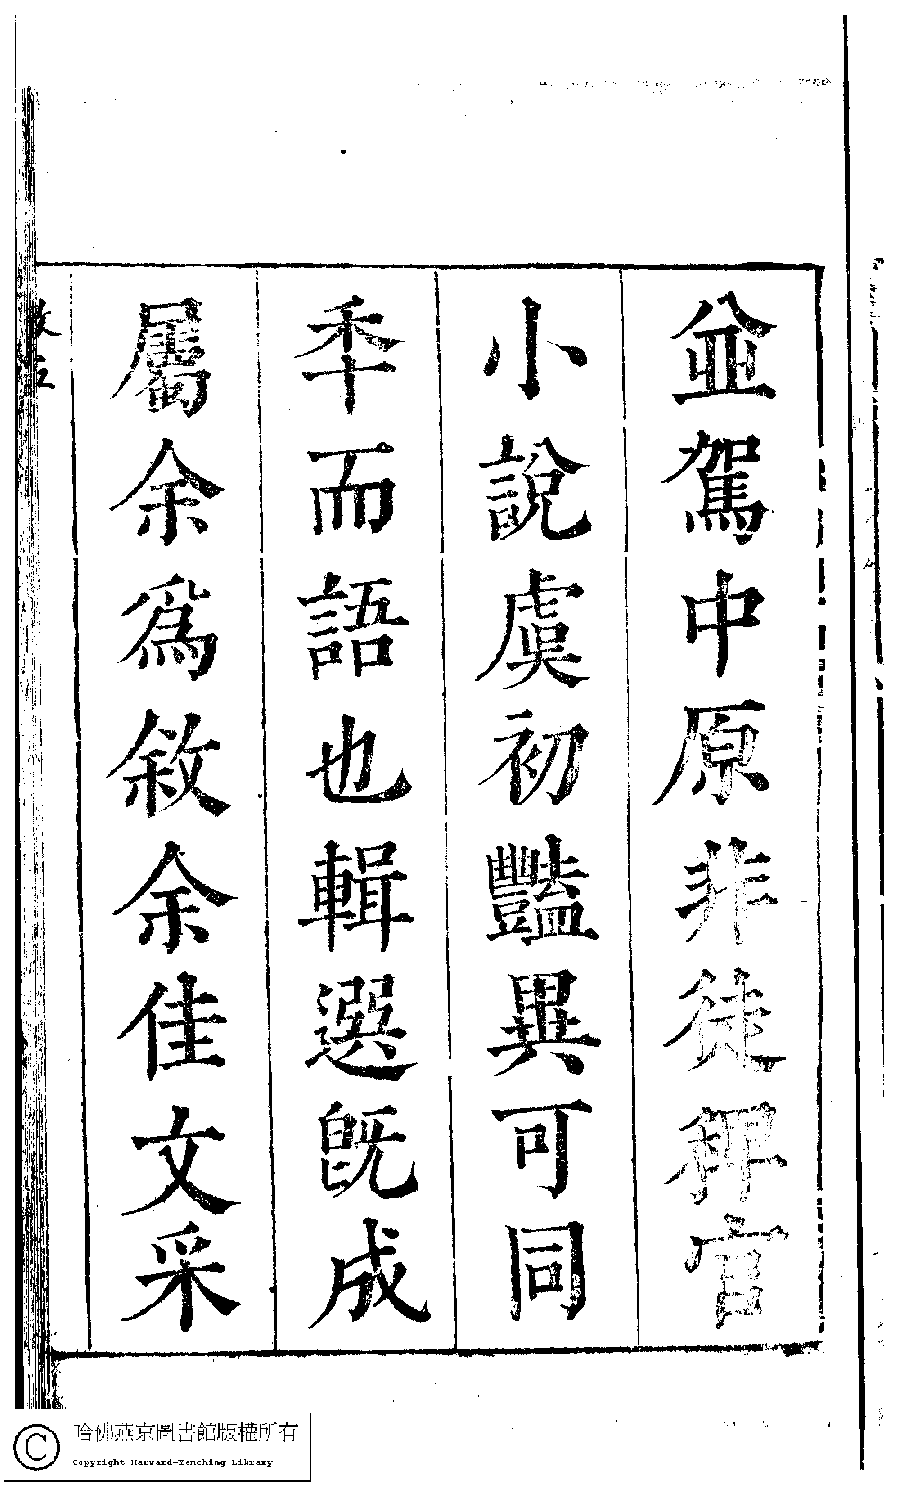 並駕中原非徒稗官
小說虞初豔異可同
秊而語也輯選旣成
屬余爲敘余佳文采
哈佛燕京圖書館版權所有
Copyright Harvard-Yenching Library